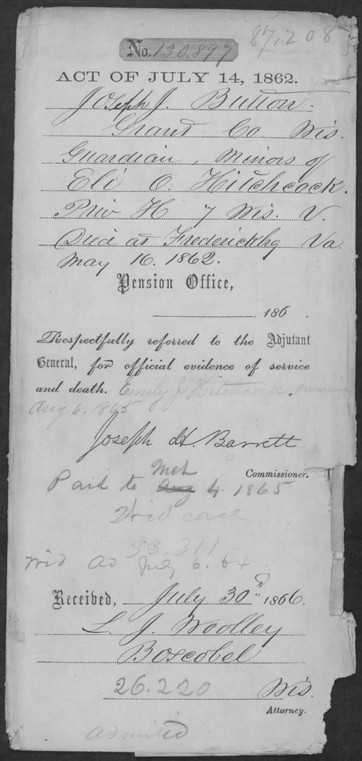 No. 130.897
87,208
ACT OF JULY 14, 1862.
Joseph J. Button.
Grant Co Wis.
Guardian, Minors of
Eli O. Hitchcock.
Priv H 7 Wis. V.
Died at Fredericksbg Va.
May 16. 1862.
Pension Office,
186
Respectfully referred to the Adjutant
General, for official evidence of service
and death. Emily J Hitchcock
Aug 6. 1865
Joseph H. Barrett
Commissioner.
Paid to Mch 4. 1865
Wid case
53.311
Wid Ad July 6. 64
Received, July 30" 1866.
L. J. Woolley
Boscobel
26.220 Wis.
Attorney.
Admitted